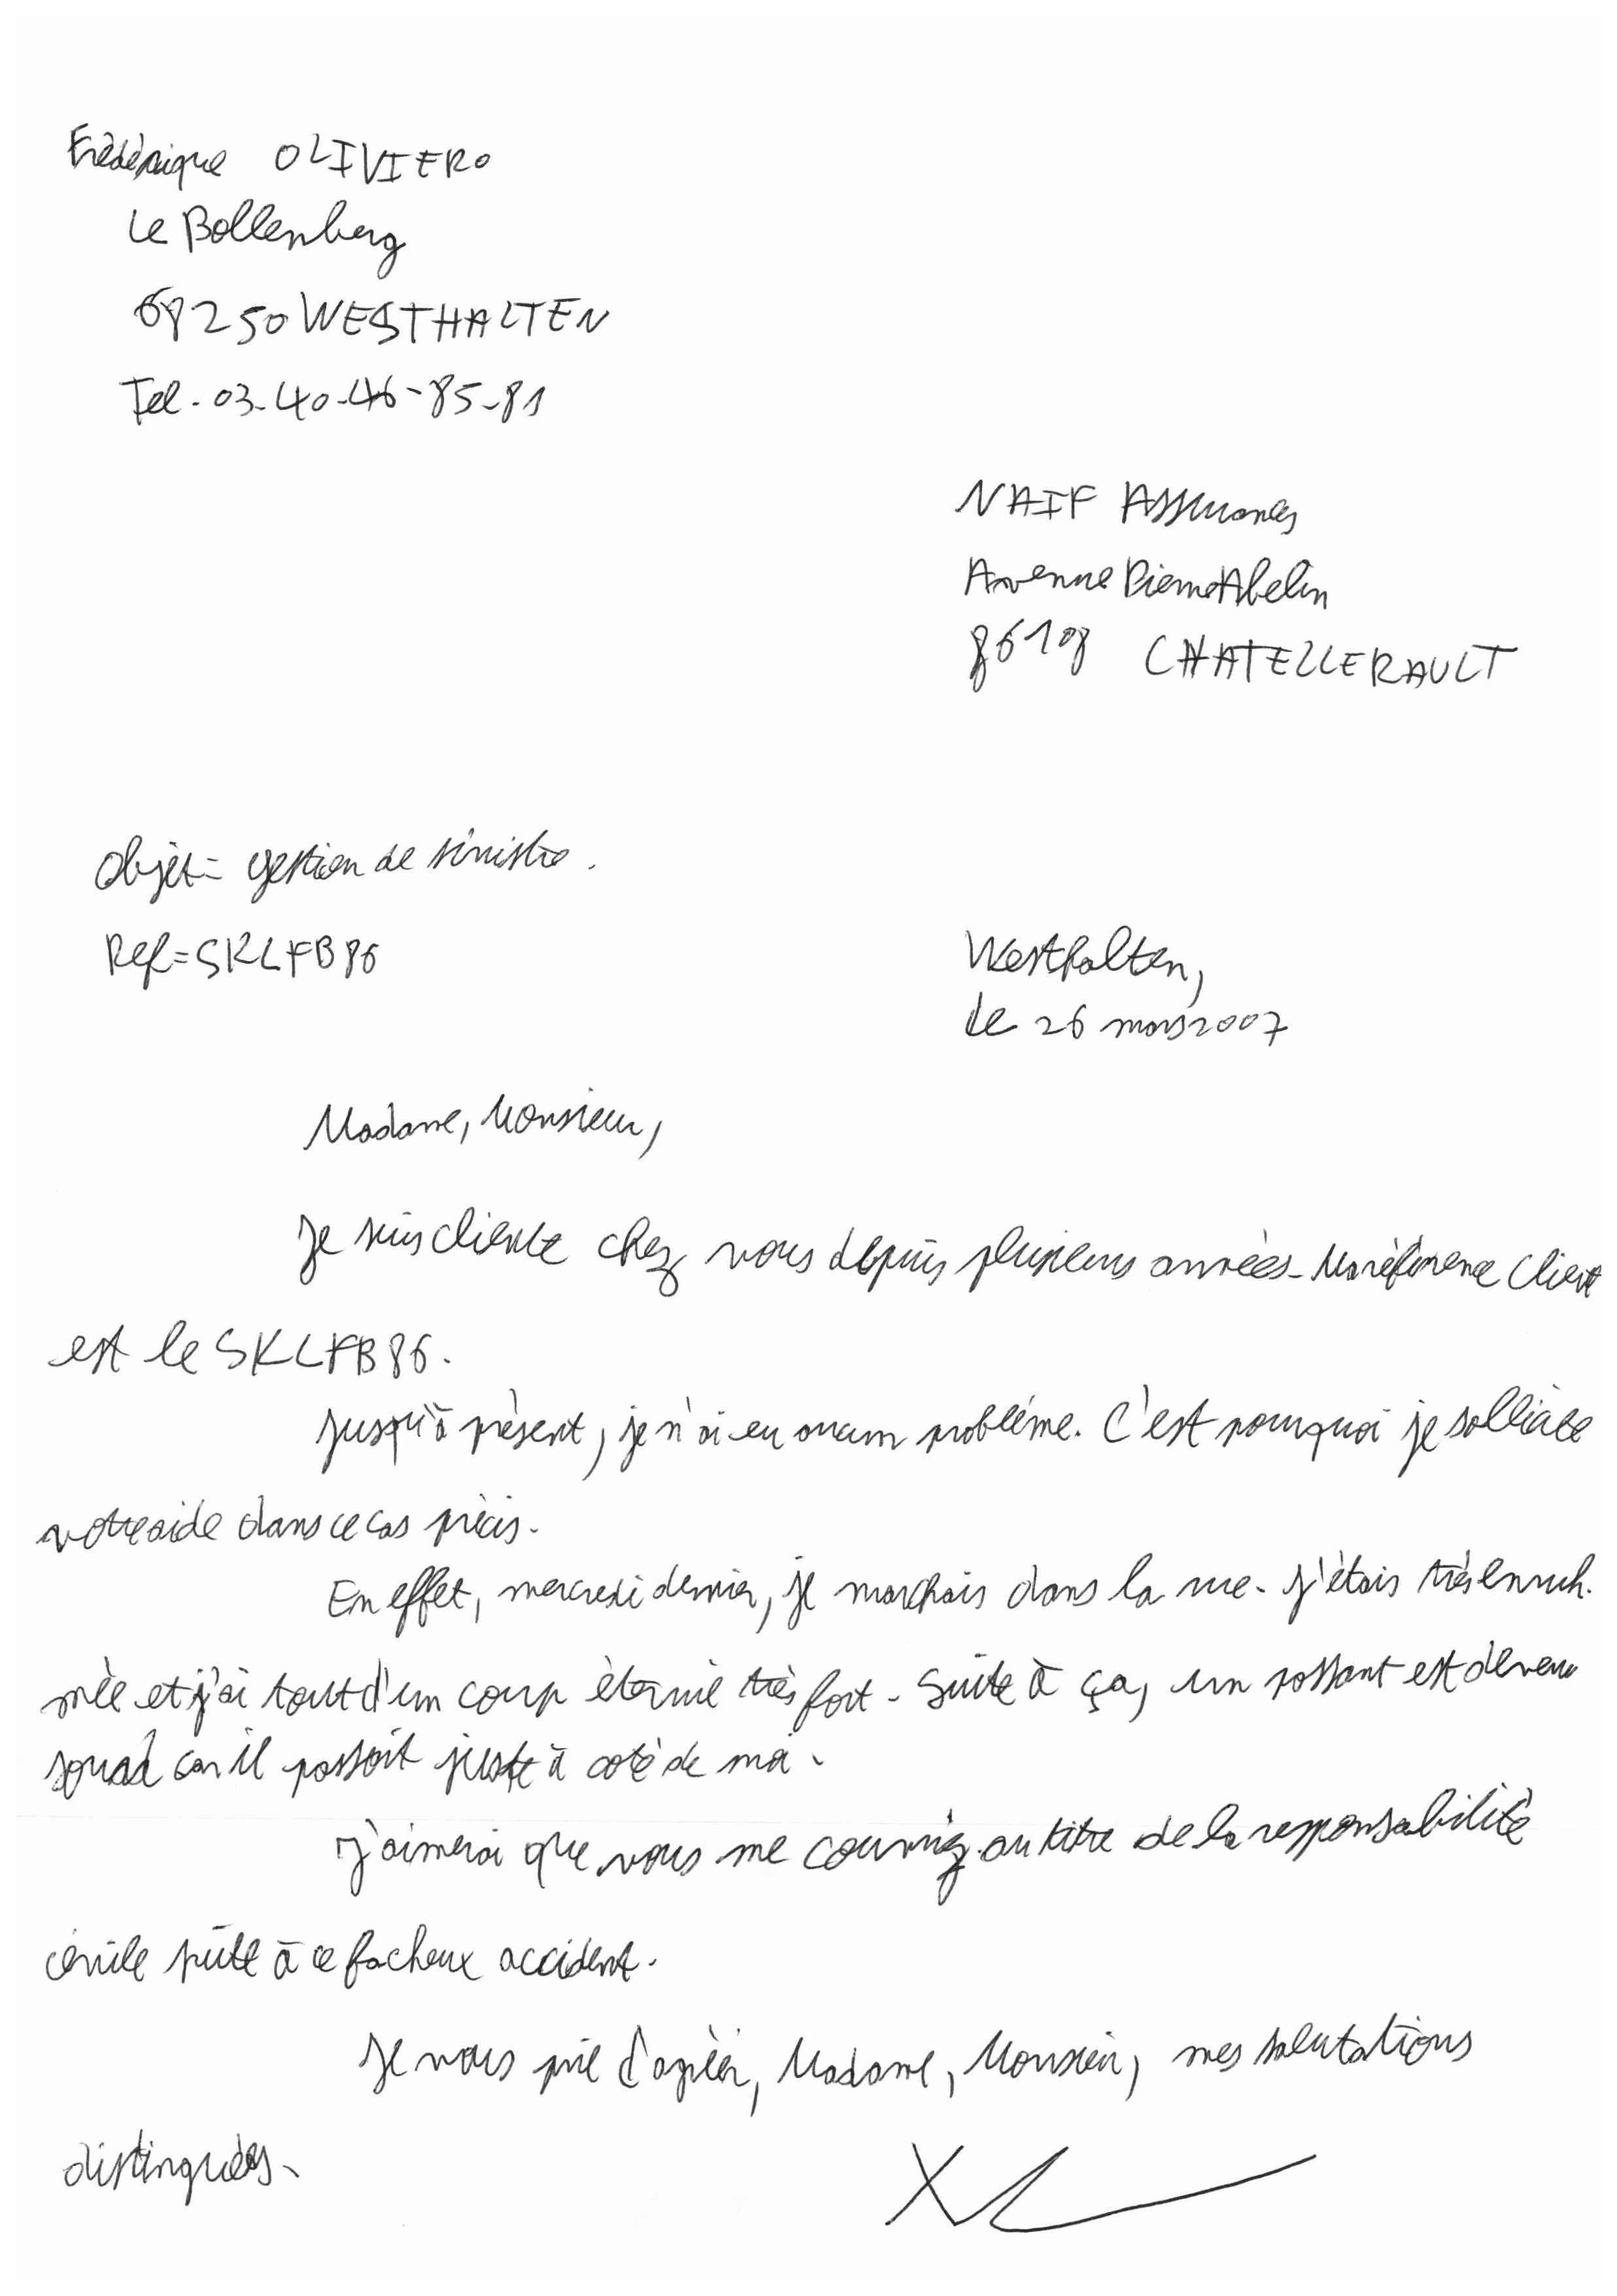 Frédérique OLIVIERO
Le Bollenberg
68250 WESTHALTEN
Tel. 03-40-46-85-81
NAIF Assurances
Avenue Pierre Abelin
86108 CHATELLERAULT
Objet = gestion de sinistre.
Ref = SKLFB86
Westhalten,
Le 26 mars 2007
Madame, Monsieur,
Je suis cliente chez vous depuis plusieurs années. Ma référence client
est le SKLFB86.
Jusqu'à présent, je n'ai eu aucun problème. C'est pourquoi je sollicite
votre aide dans ce cas précis.
En effet, mercredi dernier, je marchais dans la rue. J'étais très enruh-
mée et j'ai tout d'un coup éternué très fort. Suite à ça, un passant est devenu
sourd car il passait juste à coté de moi.
J'aimerai que vous me couvriez au titre de la responsabilité
civile suite à ce facheux accident.
Je vous prie d'agréer, Madame, Monsieur, mes salutations
distinguées.